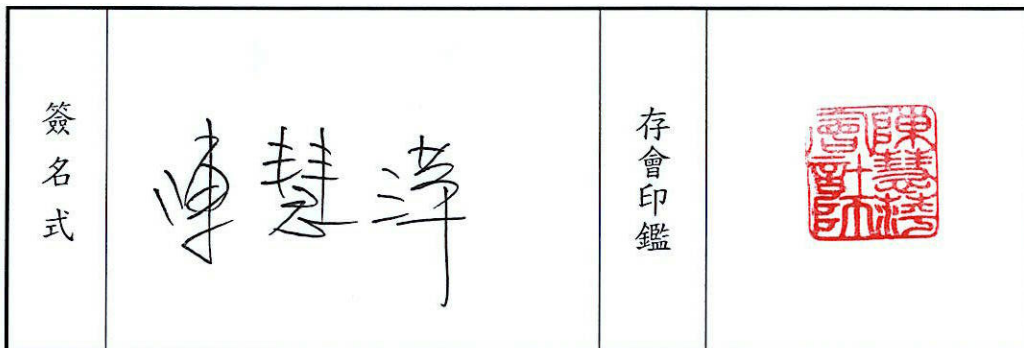 簽名式
陳慧萍
存會印鑑
陳慧萍
會計師